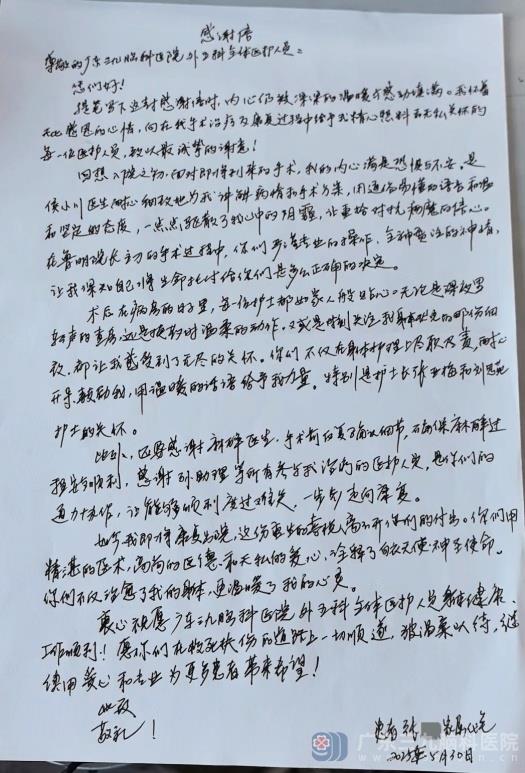 感谢信
尊敬的广东三九脑科医院外五科全体医护人员:
您们好!
提笔写下这封感谢信时,内心仍被深深的温暖与感动填满。我怀着
无比感恩的心情,向在我手术治疗及康复过程中给予我精心照料和无私关怀的
每一位医护人员,致以最诚挚的谢意!
回想入院之初,面对即将到来的手术,我的内心满是恐惧与不安。是
侯小川医生耐心细致地为我讲解病情和手术方案,用通俗易懂的语言和温
和坚定的态度,一点点驱散了我心中的阴霾,让重拾对抗病魔的信心。
在鲁明院长主刀的手术过程中,你们严谨专业的操作、全神贯注的神情,
让我深知自己将生命托付给你们是多么正确的决定。
术后在病房的日子里,每一位护士都如家人般贴心。无论是深夜里
轻声的查房,还是换药时温柔的动作,又或是时刻关注我身体状况的那份细
致,都让我感受到了无尽的关怀。你们不仅在身体护理上尽职尽责,耐心
开导鼓励我,用温暖的话语给予我力量。特别是护士长张亚梅和刘思苑
护士的关怀。
此外,还要感谢麻醉医生,手术前反复确认细节,确保麻醉过
程的顺利,感谢孙助理等所有参与我治疗的医护人员,是你们的
通力协作,让我能够顺利度过难关,一步步走向康复。
如今我即将康复出院,这份重生的喜悦离不开你们的付出。你们用
精湛的医术、高尚的医德和无私的爱心,诠释了白衣天使神圣使命。
你们不仅治愈了我的身体,更温暖了我的心灵。
衷心祝愿广东三九脑科医院外五科全体医护人员身体健康、
工作顺利!愿你们在救死扶伤的道路上一切顺遂,被温柔以待,继
续用爱心和专业为更多患者带来希望!
此致
敬礼!
患者 张
2025年5月30日
广东三九脑科医院